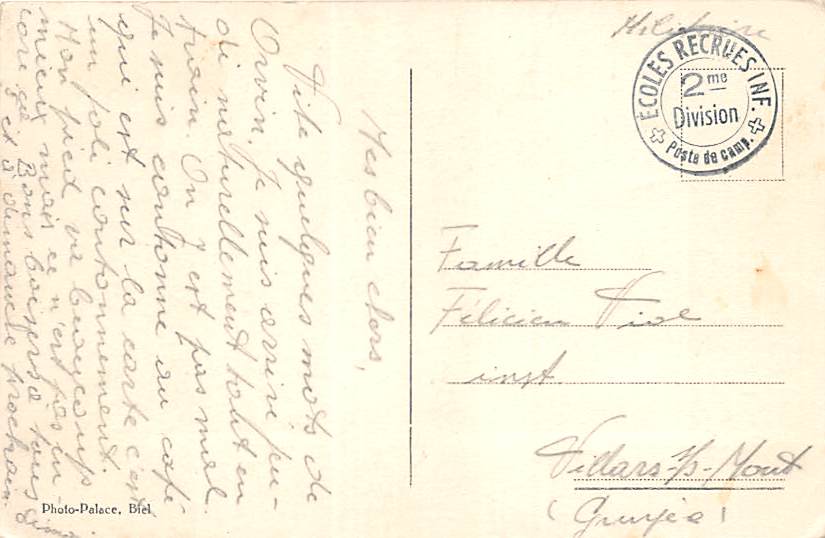 Mes bien chers,
Vite quelques mots de
Orvin. Je suis arrivé jeu-
di naturellement tout en
train. On y est pas mal.
Je suis cantonné au café
qui est sur la carte c'est
un joli cantonnement.
Mon pied va beaucoup
mieux mais ce n'est pas en
core ça. Bons baisers à tous
et à dimanche prochain.
Photo-Palace, Biel
Militaire
ÉCOLES RECRUES INF.
2me
Division
Poste de camp.
Famille
Félicien
inst
Villars-s/s-Mont
(Gruyère)